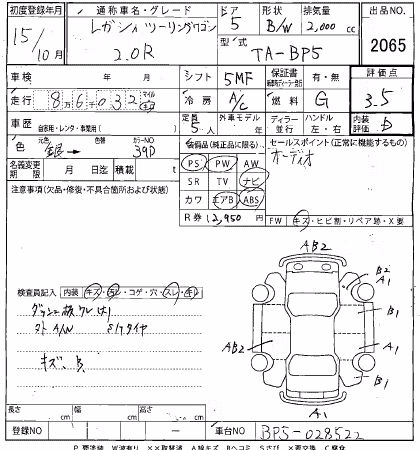 初度登録年月 通称車名・グレード ドア 形状 排気量 出品NO
15年10月 レガシィツーリングワゴン 2.0R 5 B/W 2,000cc 2065
型式 TA-BP5
車検 年 月 シフト 5MF 保証書 有・無 評価点
走行 86032 冷房 A/C 燃料 G 3.5
車歴 自家用・レンタ・事業用( ) 定員 5人 外車モデル 年 ディーラー 並行 ハンドル 左・右 内装評価 D
色 銀→ 色替 カラーNO 39D
装備品(純正品に限る) セールスポイント(正常に機能するもの)
名義変更期限 月 日迄 積載 PS PW AW オーディオ
注意事項(欠品・修復・不具合箇所および状態) SR TV ナビ
カワ エアB ABS
R券 12,950 円 FW キズ・ヒビ割・リペア跡・X要
検査員記入 内装 キズ・・コゲ・穴・スレ・
AB2
B2
A1
B1
AB2
A1
B1
A1
キズ、B
長さ cm 幅 cm 高さ cm
登録NO 車台NO BP5-028522
P 要塗装 W波有り ××取替済 A線キズ Bヘコミ Sさび ×要交換 C腐食